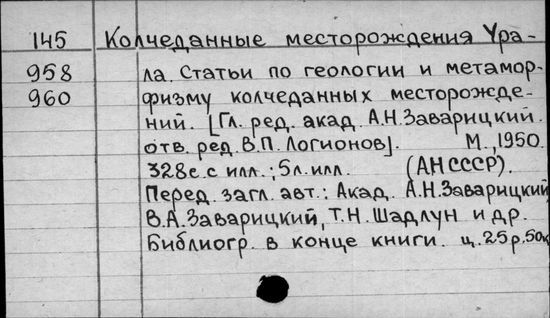 145 Колчеданные месторождения Ура-
958 ла. Статьи по геологии и метамор-
960 физму колчеданных месторожде-
ний. [Гл. ред. акад. А.Н.Заварицкий.
отв. ред. В.П. Логионов]. М., 1950.
328с. с илл.; 5л. илл. (АН СССР).
Перед. загл. авт.: Акад. А.Н.Заварицкий,
В.А.Заварицкий, Т.Н. Шадлун и др.
Библиогр. в конце книги. ц. 25р. 50к